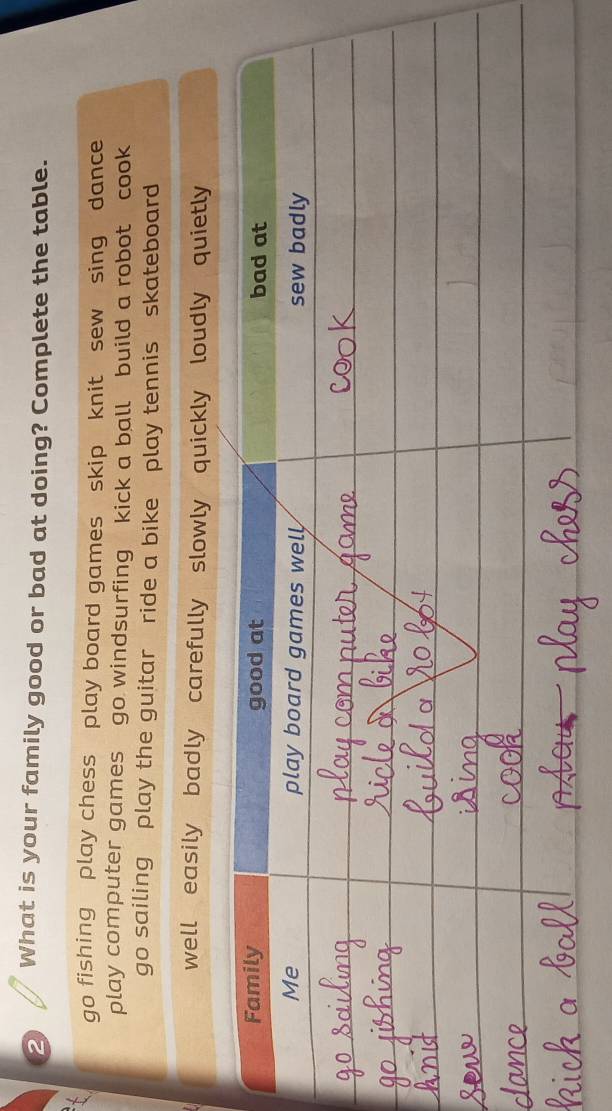 2 What is your family good or bad at doing? Complete the table.
go fishing play chess play board games skip knit sew sing dance
play computer games go windsurfing kick a ball build a robot cook
go sailing play the guitar ride a bike play tennis skateboard
well easily badly carefully slowly quickly loudly quietly
Family good at bad at
Me play board games well sew badly
go sailing play computer game cook
go fishing ride a bike
knit build a robot
sew sing
dance cook
kick a ball play chess